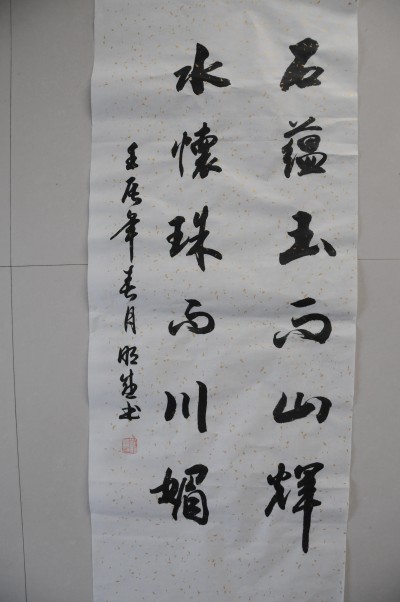 石蕴玉而山辉
水懷珠而川媚
壬辰年春月明生书